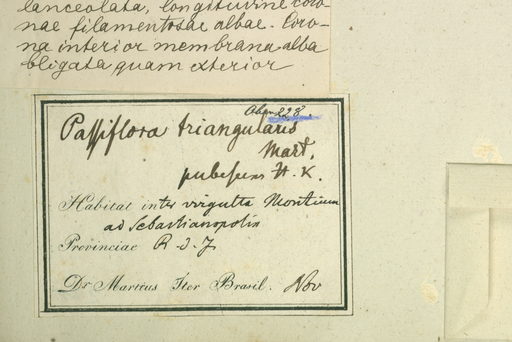 lanceolata, longitudine coro-
nae filamentosae albae. Coro-
na interior membrana alba
obligata quam exterior
Obs. 228.
Passiflora triangularis
Mart.
pubescens H. K.
Habitat inter virgulta Montium
ad Sebastianopolin
Provinciae R. d. J.
Dr Martius Iter Brasil. Nov